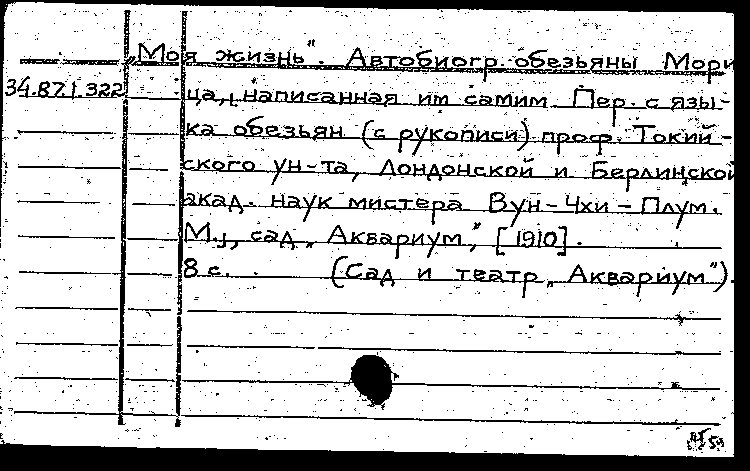 „Моя жизнь". Автобиогр. обезьяны Мори
34.87.1.322
ца, написанная им самим. Пер. с язы-
ка обезьян (с рукописи) проф. Токий-
ского ун-та, Лондонской и Берлинской
акад. наук мистера Вун-Чхи-Плум.
М., сад „Аквариум", [1910].
8 с. (Сад и театр „Аквариум").